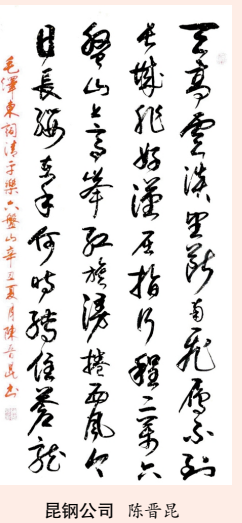 天高雲淡望斷南飛雁不到
長城非好漢屈指行程二萬六
盤山上高峰紅旗漫捲西風今
日長纓在手何時縛住蒼龍
毛澤東詞清平樂六盤山辛丑夏月陳晉昆书
昆钢公司 陈晋昆